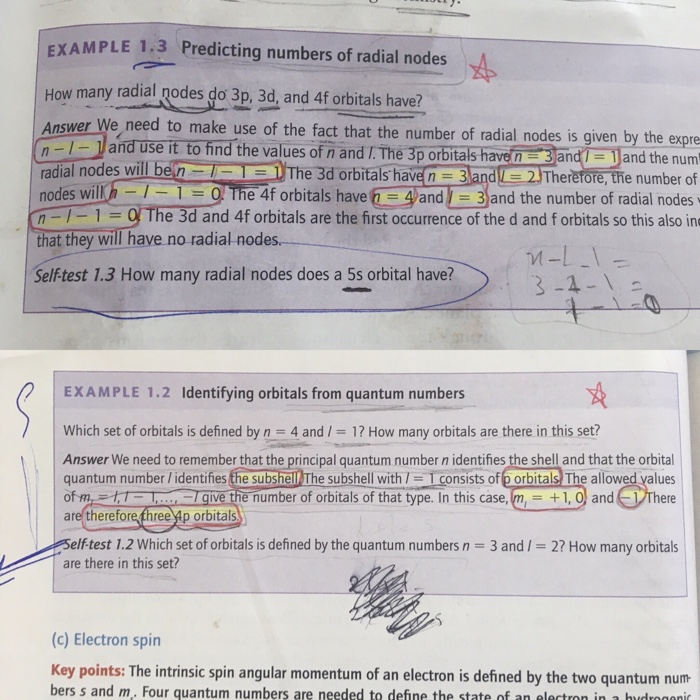 EXAMPLE 1.3 Predicting numbers of radial nodes
How many radial nodes do 3p, 3d, and 4f orbitals have?
Answer We need to make use of the fact that the number of radial nodes is given by the expre
n − l − 1 and use it to find the values of n and l. The 3p orbitals have n = 3 and l = 1 and the num
radial nodes will be n − l − 1 = 1. The 3d orbitals have n = 3 and l = 2. Therefore, the number of
nodes will n − l − 1 = 0. The 4f orbitals have n = 4 and l = 3 and the number of radial nodes
n − l − 1 = 0. The 3d and 4f orbitals are the first occurrence of the d and f orbitals so this also in
that they will have no radial nodes.
n-l-1 =
Self-test 1.3 How many radial nodes does a 5s orbital have?
EXAMPLE 1.2 Identifying orbitals from quantum numbers
Which set of orbitals is defined by n = 4 and l = 1? How many orbitals are there in this set?
Answer We need to remember that the principal quantum number n identifies the shell and that the orbital
quantum number l identifies the subshell. The subshell with l = 1 consists of p orbitals. The allowed values
of mₗ = l, l − 1,..., −l give the number of orbitals of that type. In this case, mₗ = +1, 0, and −1. There
are therefore three 4p orbitals.
Self-test 1.2 Which set of orbitals is defined by the quantum numbers n = 3 and l = 2? How many orbitals
are there in this set?
(c) Electron spin
Key points: The intrinsic spin angular momentum of an electron is defined by the two quantum num-
bers s and mₛ. Four quantum numbers are needed to define the state of an electron in a hydrogenic